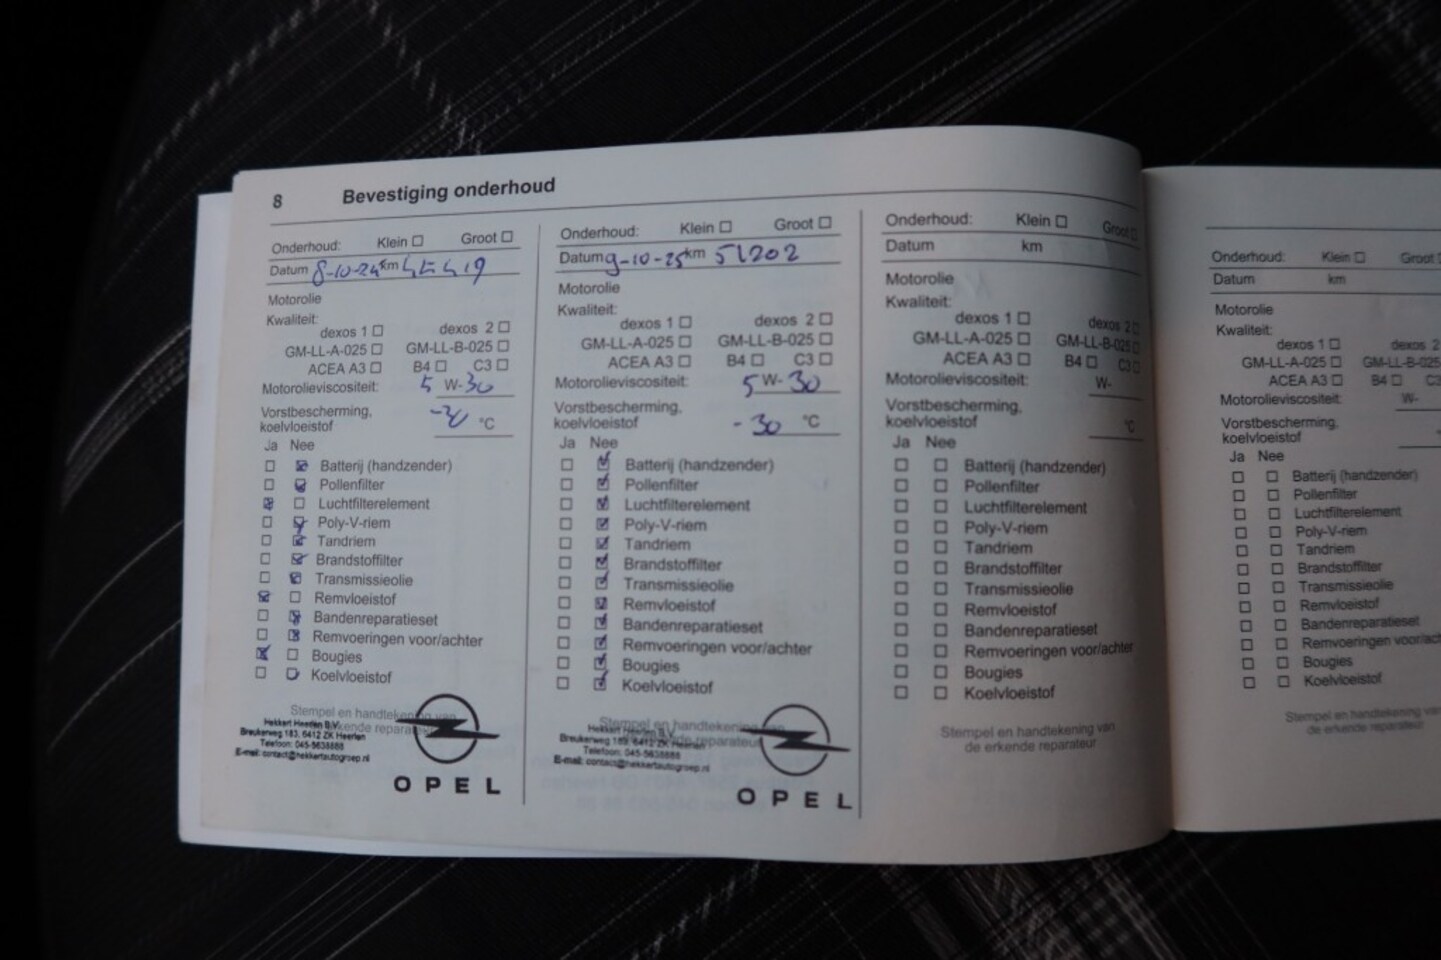 8 Bevestiging onderhoud
Onderhoud: Klein ☐ Groot ☐
Datum 8-10-24 km
Motorolie
Kwaliteit:
dexos 1 ☐ dexos 2 ☐
GM-LL-A-025 ☐ GM-LL-B-025 ☐
ACEA A3 ☐ B4 ☐ C3 ☐
Motorolieviscositeit: 5 W- 30
Vorstbescherming,
koelvloeistof °C
Ja Nee
Batterij (handzender)
Pollenfilter
Luchtfilterelement
Poly-V-riem
Tandriem
Brandstoffilter
Transmissieolie
Remvloeistof
Bandenreparatieset
Remvoeringen voor/achter
Bougies
Koelvloeistof
Stempel en handtekening van
de erkende reparateur
Hekkert Heerlen B.V.
Breukerweg 183, 6412 ZK Heerlen
Telefoon: 045-5638888
E-mail: contact@hekkertautogroep.nl
OPEL
Onderhoud: Klein ☐ Groot ☐
Datum 9-10-25 km 51202
Motorolie
Kwaliteit:
dexos 1 ☐ dexos 2 ☐
GM-LL-A-025 ☐ GM-LL-B-025 ☐
ACEA A3 ☐ B4 ☐ C3 ☐
Motorolieviscositeit: 5 W- 30
Vorstbescherming,
koelvloeistof - 30 °C
Ja Nee
Batterij (handzender)
Pollenfilter
Luchtfilterelement
Poly-V-riem
Tandriem
Brandstoffilter
Transmissieolie
Remvloeistof
Bandenreparatieset
Remvoeringen voor/achter
Bougies
Koelvloeistof
Stempel en handtekening van
de erkende reparateur
Hekkert Heerlen B.V.
Breukerweg 183, 6412 ZK Heerlen
Telefoon: 045-5638888
E-mail: contact@hekkertautogroep.nl
OPEL
Onderhoud: Klein ☐ Groot ☐
Datum km
Motorolie
Kwaliteit:
dexos 1 ☐ dexos 2 ☐
GM-LL-A-025 ☐ GM-LL-B-025 ☐
ACEA A3 ☐ B4 ☐ C3 ☐
Motorolieviscositeit: W-
Vorstbescherming,
koelvloeistof °C
Ja Nee
Batterij (handzender)
Pollenfilter
Luchtfilterelement
Poly-V-riem
Tandriem
Brandstoffilter
Transmissieolie
Remvloeistof
Bandenreparatieset
Remvoeringen voor/achter
Bougies
Koelvloeistof
Stempel en handtekening van
de erkende reparateur
Onderhoud: Klein ☐ Groot
Datum km
Motorolie
Kwaliteit:
dexos 1 ☐ dexos 2
GM-LL-A-025 ☐ GM-LL-B-025
ACEA A3 ☐ B4 ☐ C3
Motorolieviscositeit: W-
Vorstbescherming,
koelvloeistof
Ja Nee
Batterij (handzender)
Pollenfilter
Luchtfilterelement
Poly-V-riem
Tandriem
Brandstoffilter
Transmissieolie
Remvloeistof
Bandenreparatieset
Remvoeringen voor/ach
Bougies
Koelvloeistof
Stempel en handtekening van
de erkende reparateur